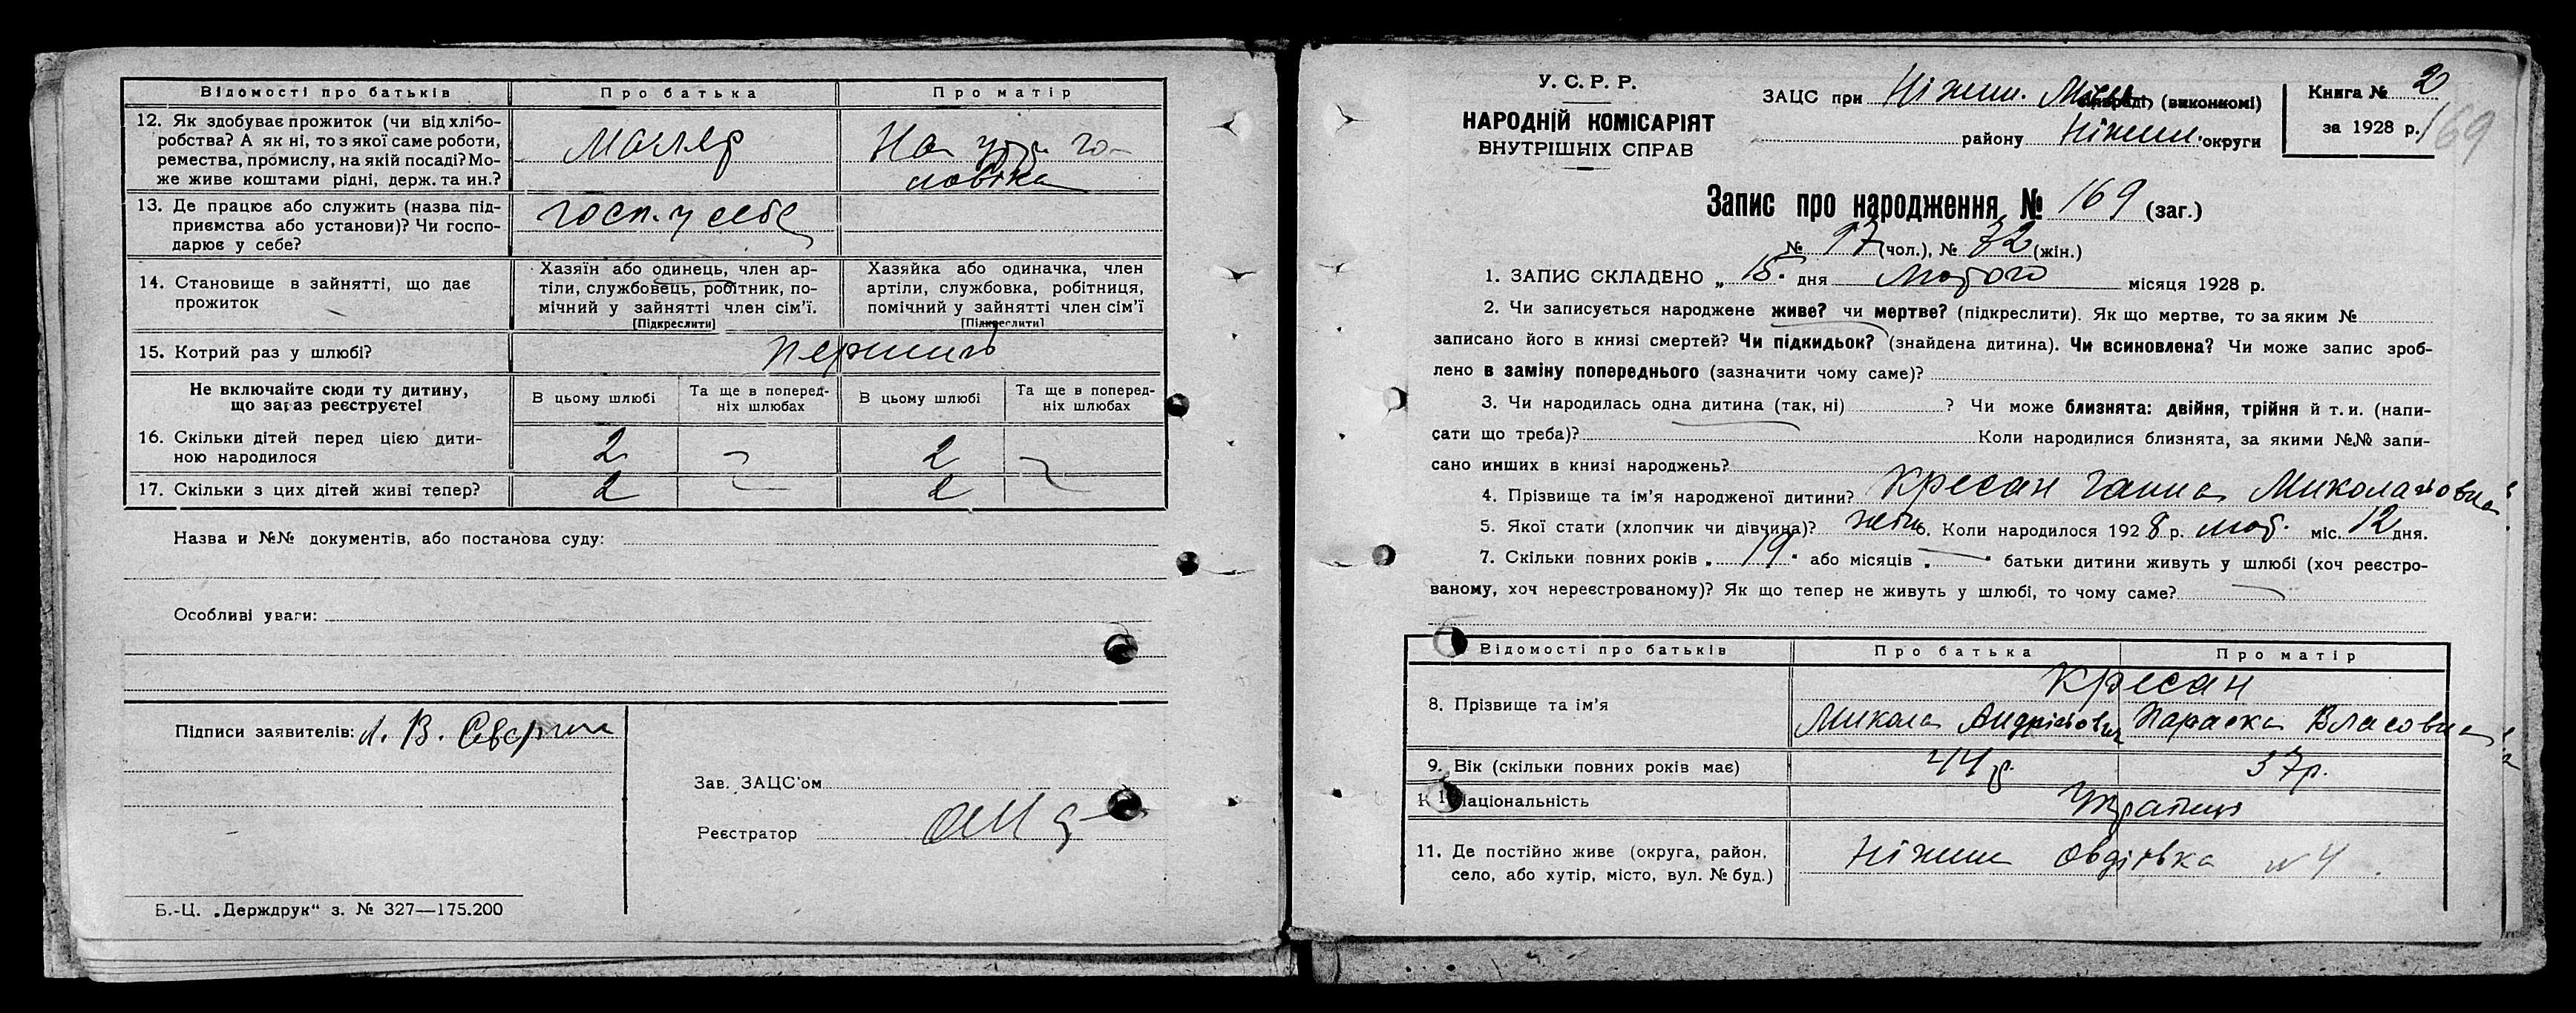 Відомості про батьків Про батька Про матір
12. Як здобуває прожиток (чи від хлібо-
робства? А як ні, то з якої саме роботи,
ремества, промислу, на якій посаді? Мо-
же живе коштами рідні, держ. та ин.?
Маляр
На утр. чо-
ловіка
13. Де працює або служить (назва під-
приємства або установи)? Чи госпо-
дарює у себе?
Госп. у себе
14. Становище в зайнятті, що дає
прожиток
Хазяїн або одинець, член ар-
тілі, службовець, робітник, по-
мічний у зайнятті член сім'ї.
[Підкреслити]
Хазяйка або одиначка, член
артіли, службовка, робітниця,
помічний у зайнятті член сім'ї
[Підкреслити]
15. Котрий раз у шлюбі?
Не включайте сюди ту дитину,
що зараз реєструєте!
В цьому шлюбі Та ще в поперед-
ніх шлюбах В цьому шлюбі Та ще в поперед-
ніх шлюбах
16. Скільки дітей перед цією дити-
ною народилося 2 2
17. Скільки з цих дітей живі тепер? 2 2
Назва и №№ документів, або постанова суду:
Особливі уваги:
Підписи заявителів:
Зав. ЗАЦС'ом
Реєстратор
Б.-Ц. „Держдрук“ з. № 327—175.200
У. С. Р. Р.
НАРОДНІЙ КОМІСАРІЯТ
ВНУТРІШНІХ СПРАВ
ЗАЦС при Ніжин. (виконкомі)
району Ніжин. округи
Книга № 2
за 1928 р.
169
Запис про народження № 169 (заг.)
№ 97 (чол.), № 72 (жін.)
1. ЗАПИС СКЛАДЕНО „ 15. дня Лютого місяця 1928 р.
2. Чи записується народжене живе? чи мертве? (підкреслити). Як що мертве, то за яким №
записано його в книзі смертей? Чи підкидьок? (знайдена дитина). Чи всиновлена? Чи може запис зроб-
лено в заміну попереднього (зазначити чому саме)?
3. Чи народилась одна дитина (так, ні) ? Чи може близнята: двійня, трійня й т. и. (напи-
сати що треба)? Коли народилися близнята, за якими №№ запи-
сано инших в книзі народжень?
4. Прізвище та ім'я народженої дитини? Кресан Ганна Миколаївна
5. Якої стати (хлопчик чи дівчина)? жін. 6. Коли народилося 1928 р. лют. міс. 12 дня.
7. Скільки повних років „ 19 “ або місяців „ “ батьки дитини живуть у шлюбі (хоч реєстро-
ваному, хоч нереєстрованому)? Як що тепер не живуть у шлюбі, то чому саме?
Відомості про батьків Про батька Про матір
8. Прізвище та ім'я
Кресан
Микола Андрійович Параска Власовна
9. Вік (скільки повних років має) 44 р. 37 р.
Національність
11. Де постійно живе (округа, район,
село, або хутір, місто, вул. № буд.)
Ніжин Овдіївка № 4